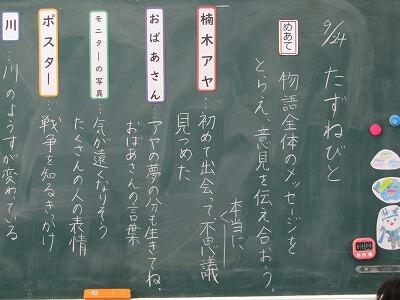 9/24
たずねびと
めあて
物語全体のメッセージを
とらえ、意見を伝え合おう。
楠木アヤ…初めて出会って不思議
本当に、
見つめた
おばあさん…アヤの夢の分も生きてね。
おばあさんの言葉
モニターの写真…気が遠くなりそう
たくさんの人の表情
ポスター…戦争を知るきっかけ
川…川のようすが変わっている